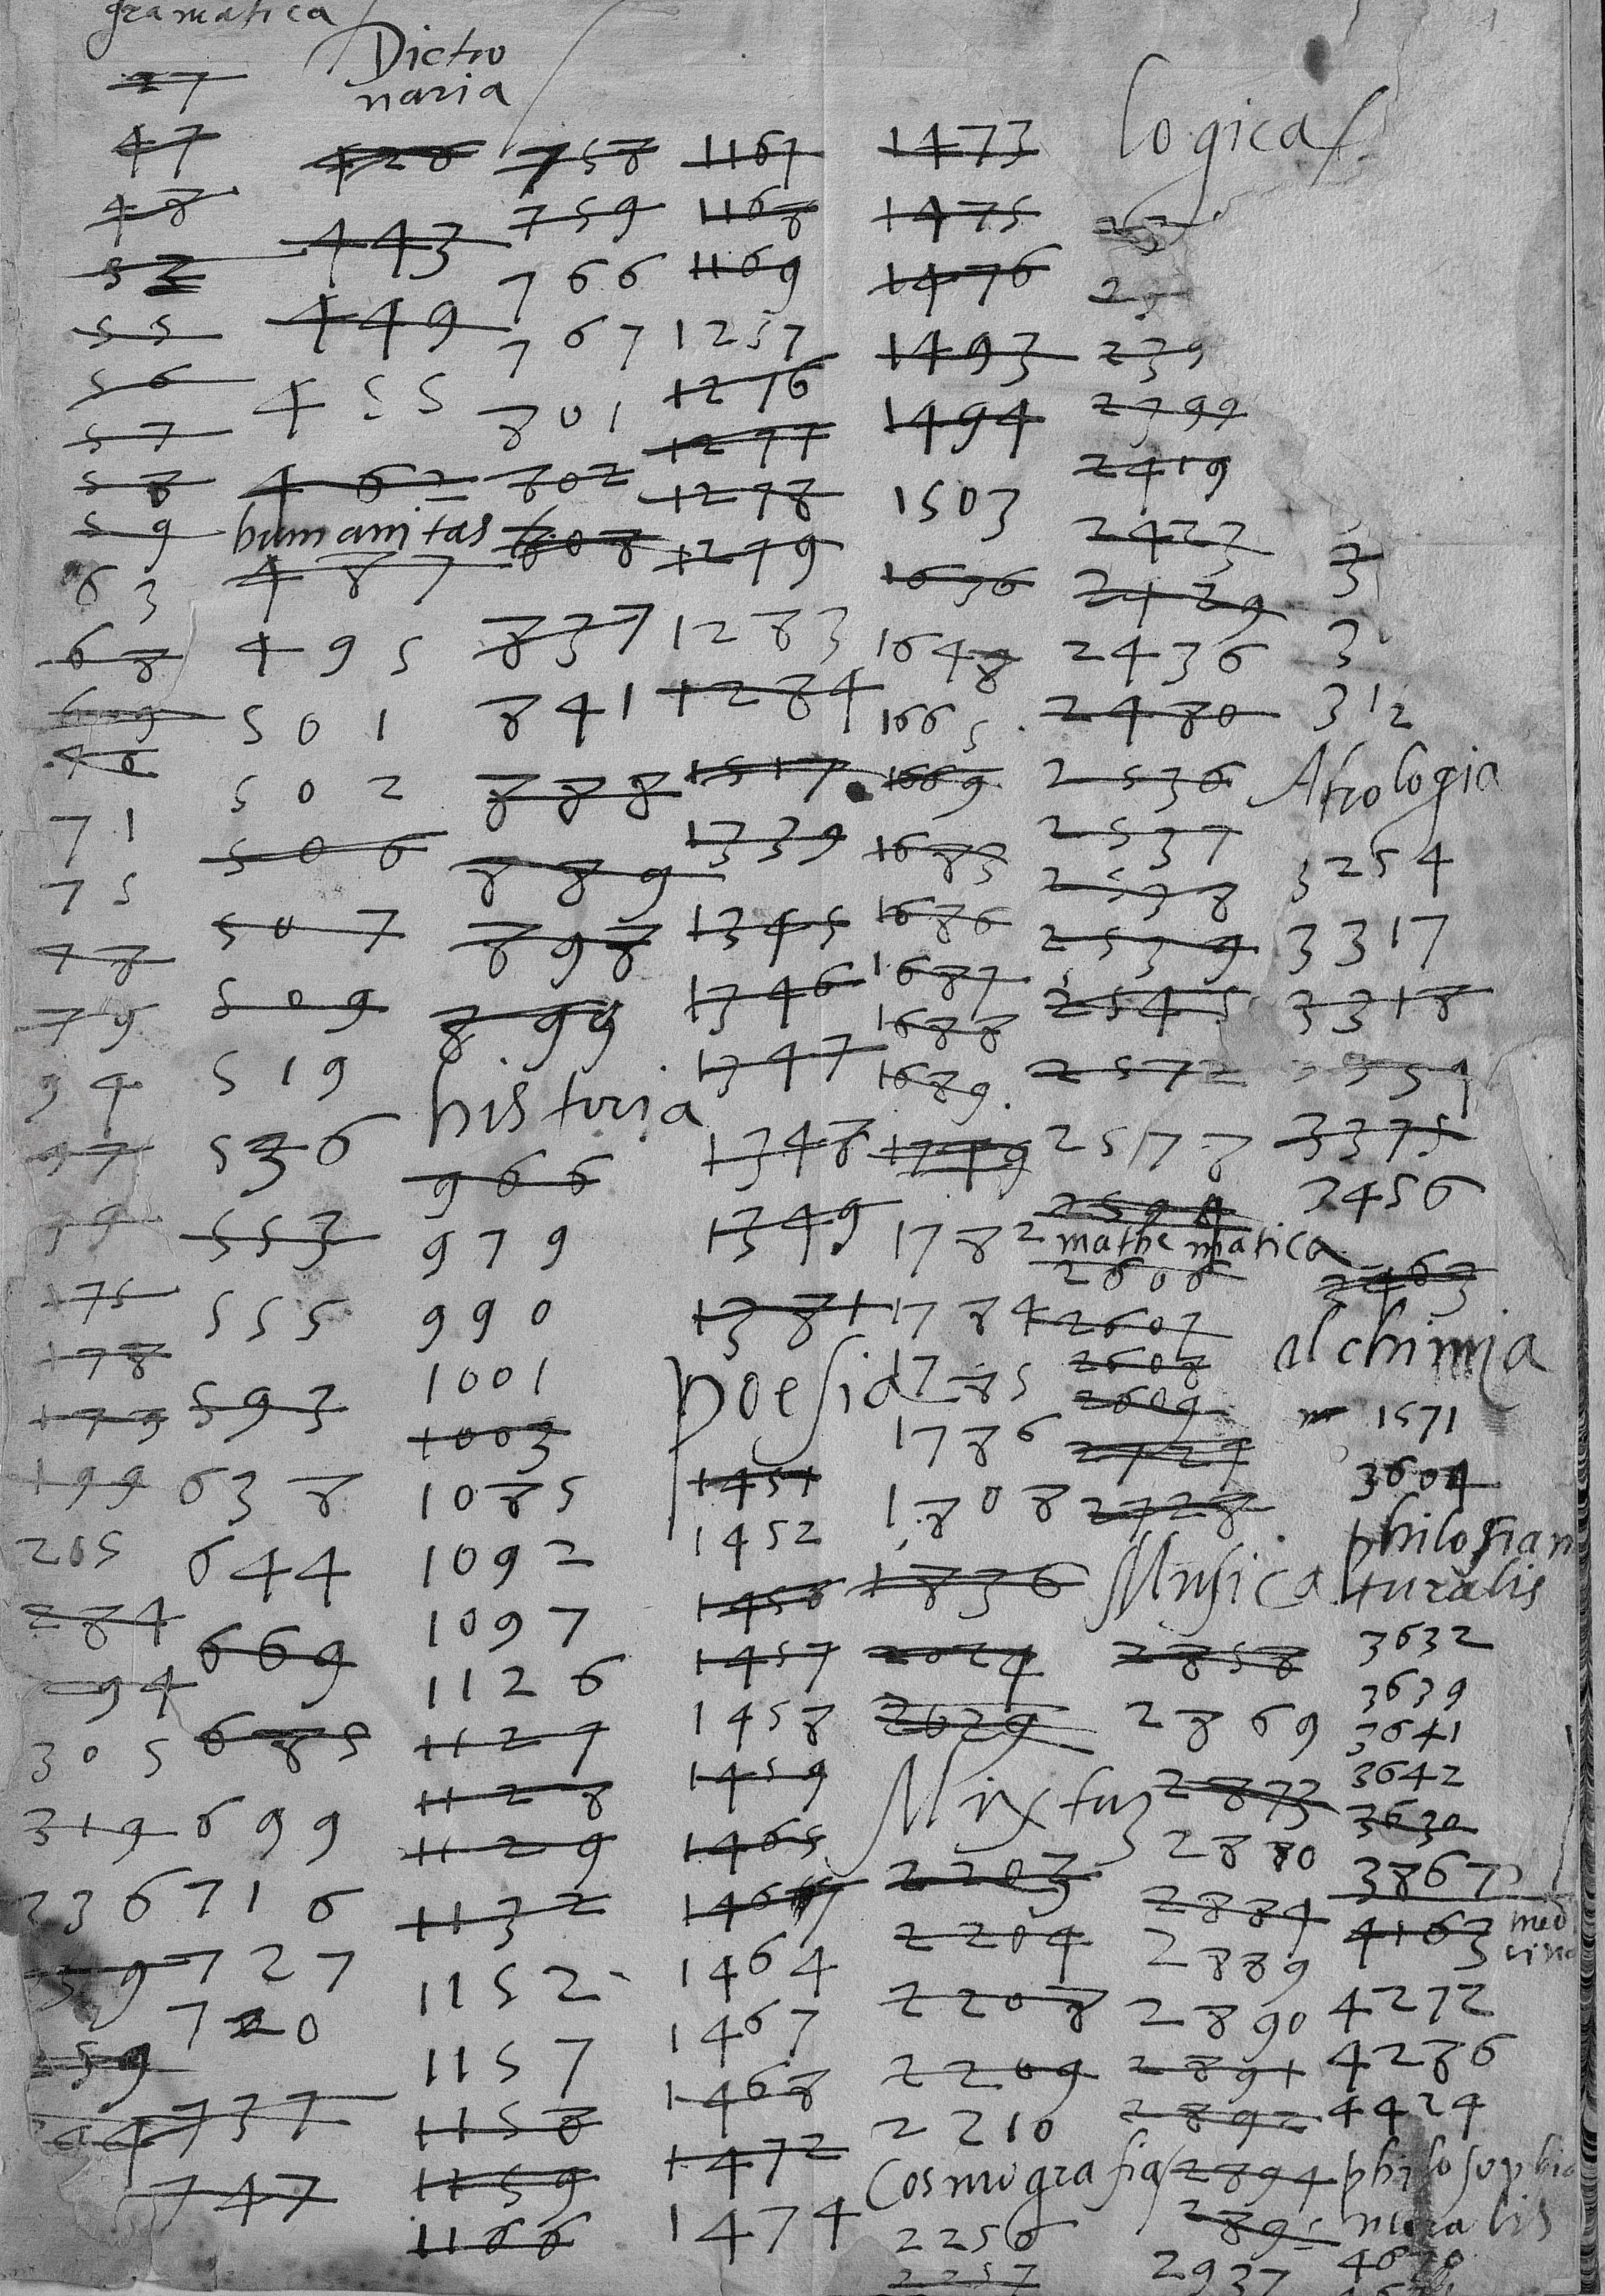 gramatica
27
47
48
52
55
56
57
58
59
63
68
69
71
75
78
79
94
97
99
175
178
179
199
205
284
94
305
319
336
59
Dictio
naria
428
443
449
455
462
humanitas
487
495
501
502
506
507
509
519
536
553
555
593
638
644
669
685
699
716
727
720
737
747
758
759
766
767
801
802
808
837
841
888
889
898
899
historia
966
979
990
1001
1003
1085
1092
1097
1126
1127
1128
1129
1132
1152
1157
1158
1159
1166
1167
1168
1169
1257
1276
1277
1278
1279
1283
1284
1317
1339
1345
1346
1347
1348
1349
1381
poesia
1451
1452
1456
1457
1458
1459
1465
1464
1467
1468
1472
1474
1473
1475
1476
1493
1494
1503
1636
1648
1665
1669
1683
1686
1687
1688
1689
1749
1782
1784
1785
1786
1808
1836
2024
2029
Mixtus
2203
2204
2208
2209
2210
Cosmografia
2256
2257
logica
239
2399
2419
2423
2429
2436
2480
2536
2537
2538
2539
2545
2572
2577
2594
mathematica
2606
2607
2608
2609
2727
2728
Musica
2858
2869
2873
2880
2884
2889
2890
2891
2892
2894
2895
2937
3
3
312
Astrologia
3254
3317
3318
3359
3375
3456
3463
alchimia
1571
3604
philosofia na
turalis
3632
3639
3641
3642
3630
3867
medi
cina
4163
4272
4286
4424
philosophia
moralis
4670